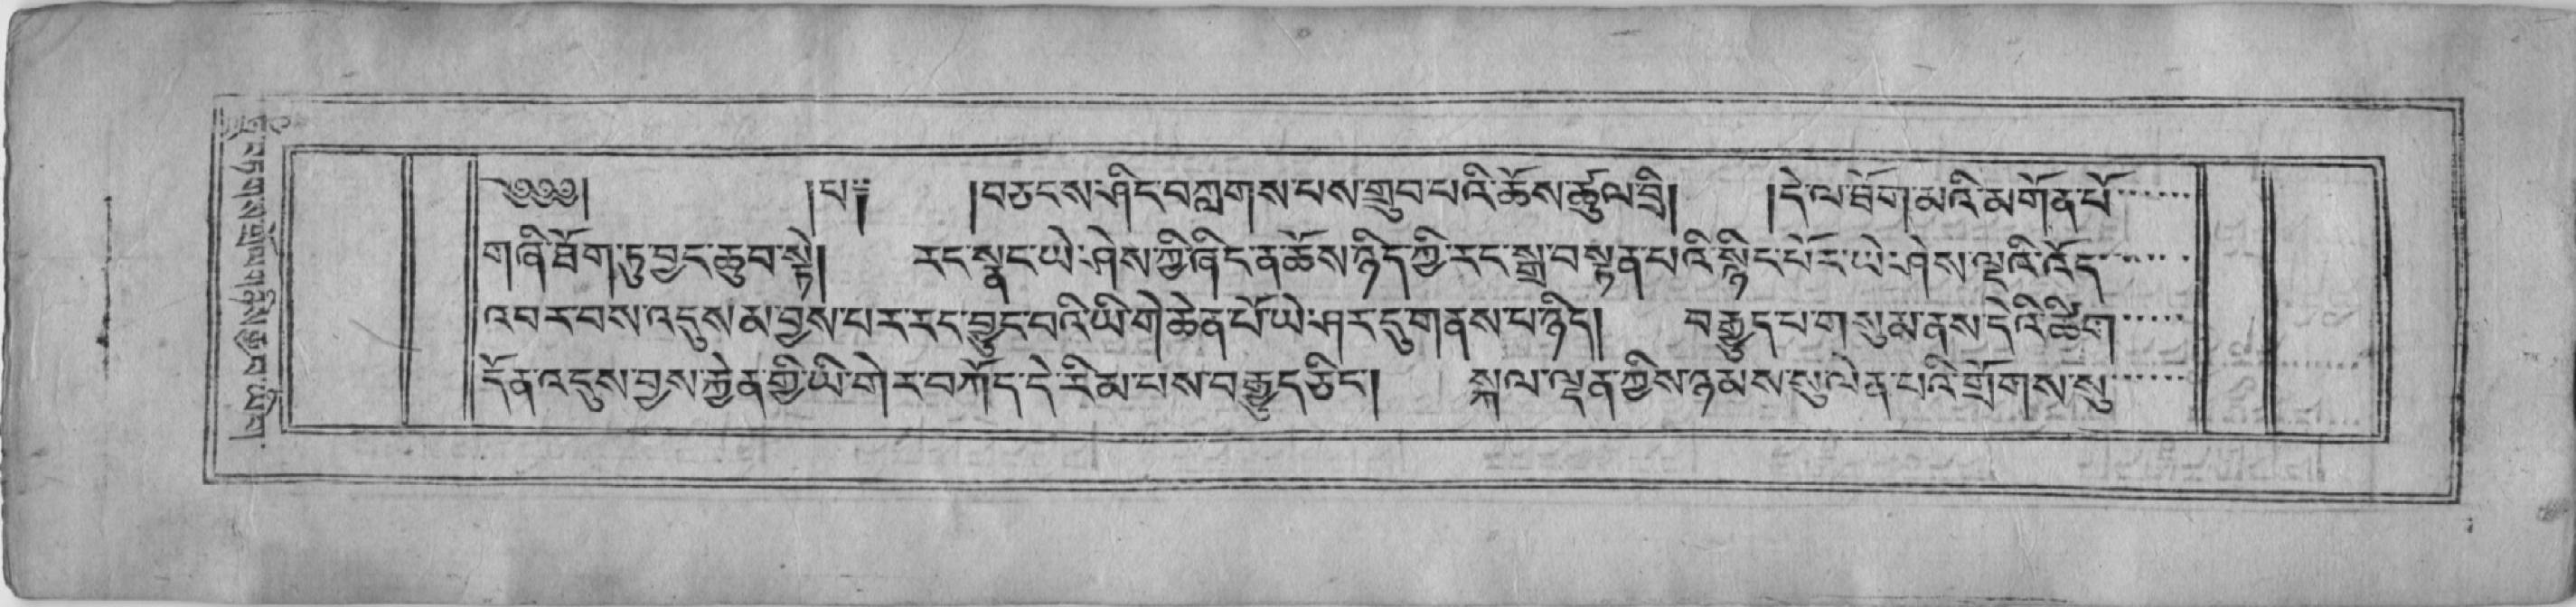 ༄༅༅། །པ༔ །བཅངས་ཤིང་བཀླགས་པས་གྲུབ་པའི་ཆོས་ཚུལ་བྲི། །དེ་ལ་ཐོག་མའི་མགོན་པོ་
གཞི་ཐོག་ཏུ་བྱང་ཆུབ་སྟེ། རང་སྣང་ཡེ་ཤེས་ཀྱི་ཞིང་ན་ཆོས་ཉིད་ཀྱི་རང་སྒྲ་བསྟན་པའི་སྙིང་པོར་ཡེ་ཤེས་ལྔའི་འོད་
འབར་བས་འདུས་མ་བྱས་པར་རང་བྱུང་བའི་ཡི་གེ་ཆེན་པོ་ཡེ་ཤར་དུ་གནས་པ་ཉིད། བརྒྱུད་པ་གསུམ་ནས་དེའི་ཚིག་
དོན་འདུས་བྱས་རྐྱེན་གྱི་ཡི་གེར་བཀོད་དེ་རིམ་པས་བརྒྱུད་ཅིང་། སྐལ་ལྡན་གྱིས་ཉམས་སུ་ལེན་པའི་གྲོགས་སུ་